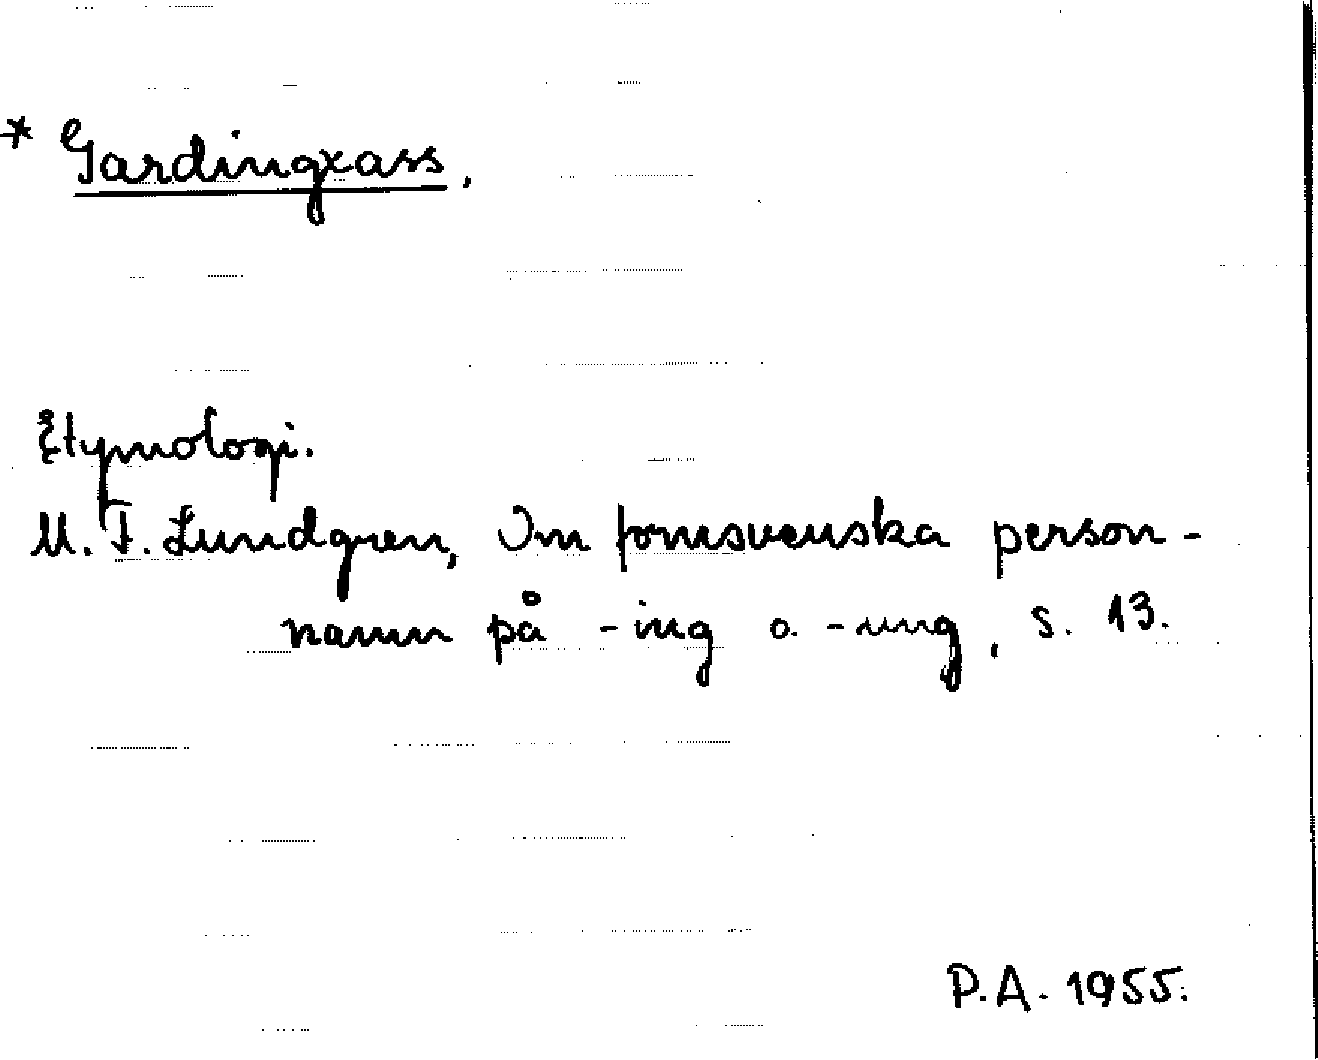 * Gardingxass,
Etymologi.
M. F. Lundgren, Om fornsvenska person-
namn på -ing o. -ung, s. 13.
P.A. 1955.